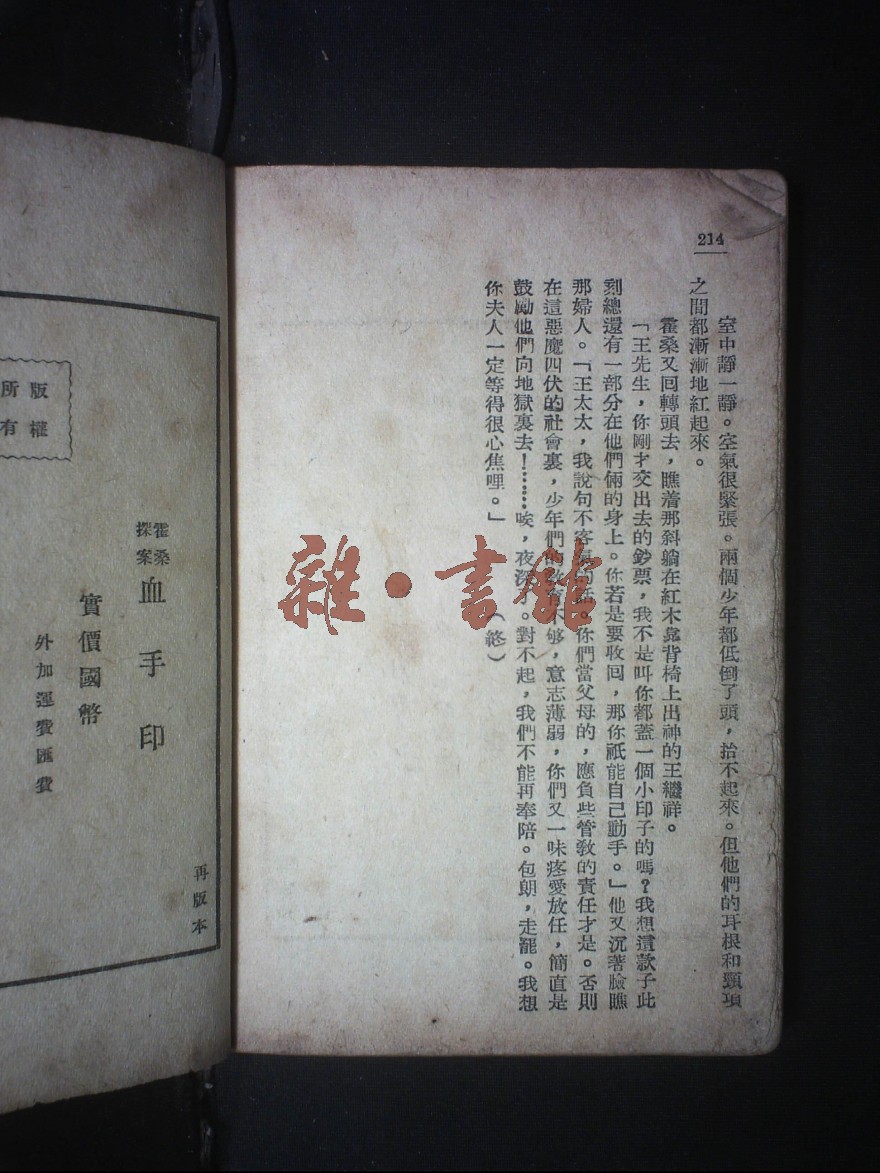 214
室中靜一靜。空氣很緊張。兩個少年都低倒了頭，抬不起來。但他們的耳根和頸項
之間都漸漸地紅起來。
霍桑又回轉頭去，瞧着那斜躺在紅木靠背椅上出神的王繼祥。
「王先生，你剛才交出去的鈔票，我不是叫你都蓋一個小印子的嗎？我想這款子此
刻總還有一部分在他們倆的身上。你若是要收回，那你祇能自己動手。」他又沉著臉瞧
那婦人。「王太太，我說句不客氣的話。你們當父母的，應負些管教的責任才是。否則
在這惡魔四伏的社會裏，少年們的教育不够，意志薄弱，你們又一味疼愛放任，簡直是
鼓勵他們向地獄裏去！……唉，夜深了。對不起，我們不能再奉陪。包朗，走罷。我想
你夫人一定等得很心焦哩。」
（終）
雜·書館
版權
所有
霍桑
探案
血手印
實價國幣
外加運費匯費
再版本